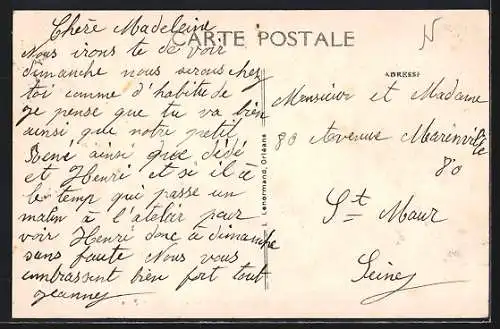 Chère Madeleine
CARTE POSTALE
Nous irons te de voir
dimanche nous serons chez
toi comme d'habitude
je pense que tu va bien
ainsi que notre petit
René ainsi que dédé
et Henri et si il à
le temp qui passe un
matin à l'atelier pour
voir Henri donc à dimanche
sans faute Nous vous
embrassent bien fort tout
Jeanne
L. Lenormand, Orléans
ADRESSE
Monsieur et Madame
80 Avenue Marinville
80
St Maur
Seine